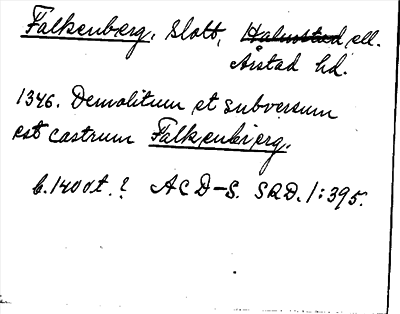 Falkenberg. Slott, Halmstad ell.
Årstad hd.
1346. Demolitum et subversum
est castrum Falkenbierg.
b. 1400 t. ? ACD-S. SRD. 1:395.